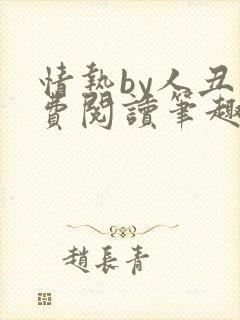 情熱by人丑
費閱讀筆趣
趙長青